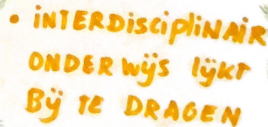 • iNTERDisciplinAiR
ONDERWijs lijkt
Bij TE DRAGEN